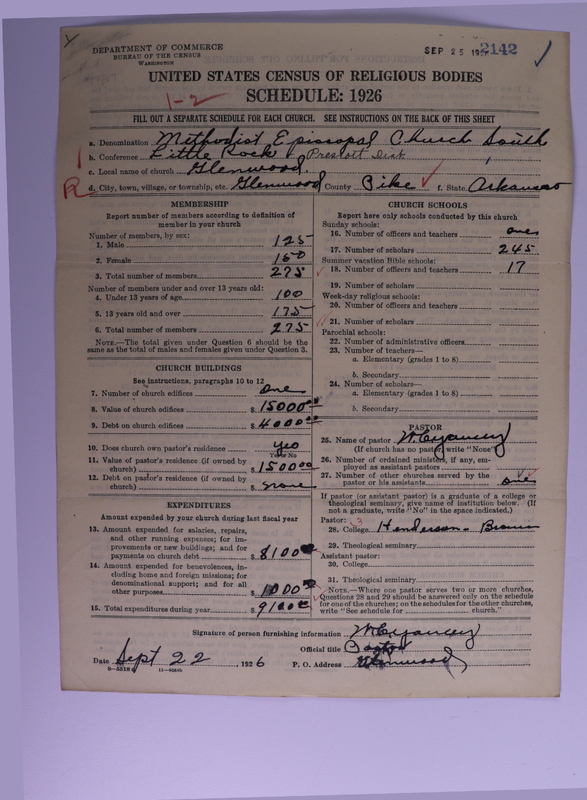 DEPARTMENT OF COMMERCE
BUREAU OF THE CENSUS
WASHINGTON
SEP 25 1926
2142
UNITED STATES CENSUS OF RELIGIOUS BODIES
1-2
SCHEDULE: 1926
FILL OUT A SEPARATE SCHEDULE FOR EACH CHURCH. SEE INSTRUCTIONS ON THE BACK OF THIS SHEET
a. Denomination Methodist Episcopal Church South
b. Conference Little Rock Prescott Dist.
c. Local name of church Glenwood
d. City, town, village, or township, etc. Glenwood County Pike f. State Arkansas
MEMBERSHIP
Report number of members according to definition of member in your church
Number of members, by sex:
1. Male 125
2. Female 150
3. Total number of members 275
Number of members under and over 13 years old:
4. Under 13 years of age 100
5. 13 years old and over 175
6. Total number of members 275
NOTE.—The total given under Question 6 should be the
same as the total of males and females given under Question 3.
CHURCH BUILDINGS
See instructions, paragraphs 10 to 12
7. Number of church edifices One
8. Value of church edifices $ 15000.00
9. Debt on church edifices $ 4000.00
10. Does church own pastor's residence yes
Yes or No
11. Value of pastor's residence (if owned by
church) $ 1500.00
12. Debt on pastor's residence (if owned by
church) $ none
EXPENDITURES
Amount expended by your church during last fiscal year
13. Amount expended for salaries, repairs,
and other running expenses; for im-
provements or new buildings; and for
payments on church debt $ 8100
14. Amount expended for benevolences, in-
cluding home and foreign missions; for
denominational support; and for all
other purposes $ 1000
15. Total expenditures during year $ 9100.00
CHURCH SCHOOLS
Report here only schools conducted by this church
Sunday schools:
16. Number of officers and teachers one
17. Number of scholars 245
Summer vacation Bible schools:
18. Number of officers and teachers 17
19. Number of scholars
Week-day religious schools:
20. Number of officers and teachers
21. Number of scholars
Parochial schools:
22. Number of administrative officers
23. Number of teachers—
a. Elementary (grades 1 to 8)
b. Secondary
24. Number of scholars—
a. Elementary (grades 1 to 8)
b. Secondary
PASTOR
25. Name of pastor W. C. Yancey
(If church has no pastor, write "None")
26. Number of ordained ministers, if any, em-
ployed as assistant pastors
27. Number of other churches served by the
pastor or his assistants one
If pastor (or assistant pastor) is a graduate of a college or
theological seminary, give name of institution below. (If
not a graduate, write "No" in the space indicated.)
Pastor: 3
28. College Henderson-Brown
29. Theological seminary
Assistant pastor:
30. College
31. Theological seminary
NOTE.—Where one pastor serves two or more churches,
Questions 28 and 29 should be answered only on the schedule
for one of the churches; on the schedules for the other churches,
write "See schedule for church."
Signature of person furnishing information W C Yancey
Official title Pastor
Date Sept 22, 1926 P. O. Address Glenwood